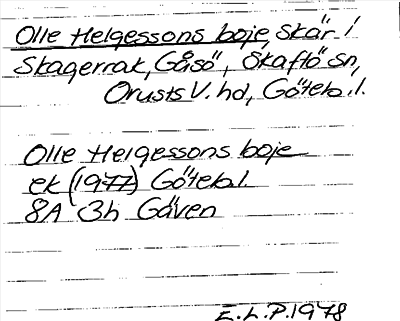 Olle Helgessons boje, skär i
Skagerrak, Gåsö, Skaftö sn,
Orusts V. hd, Göteb. l.
Olle Helgessons boje
ek (1977) Göteb l.
8A 3h Gäven
E.L.P. 1978